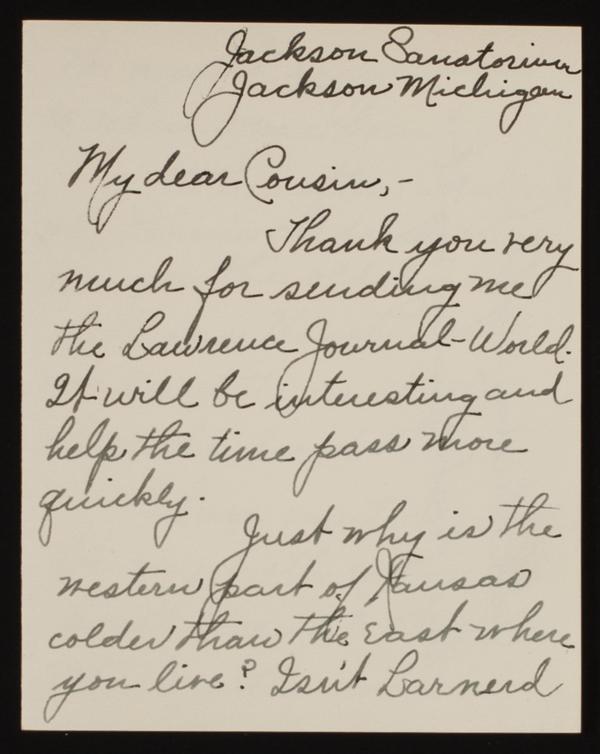 Jackson Sanatorium
Jackson Michigan
My dear Cousin,-
Thank you very
much for sending me
the Lawrence Journal-World.
It will be interesting and
help the time pass more
quickly.
Just why is the
western part of Kansas
colder than the East where
you live? Isn't Larnerd